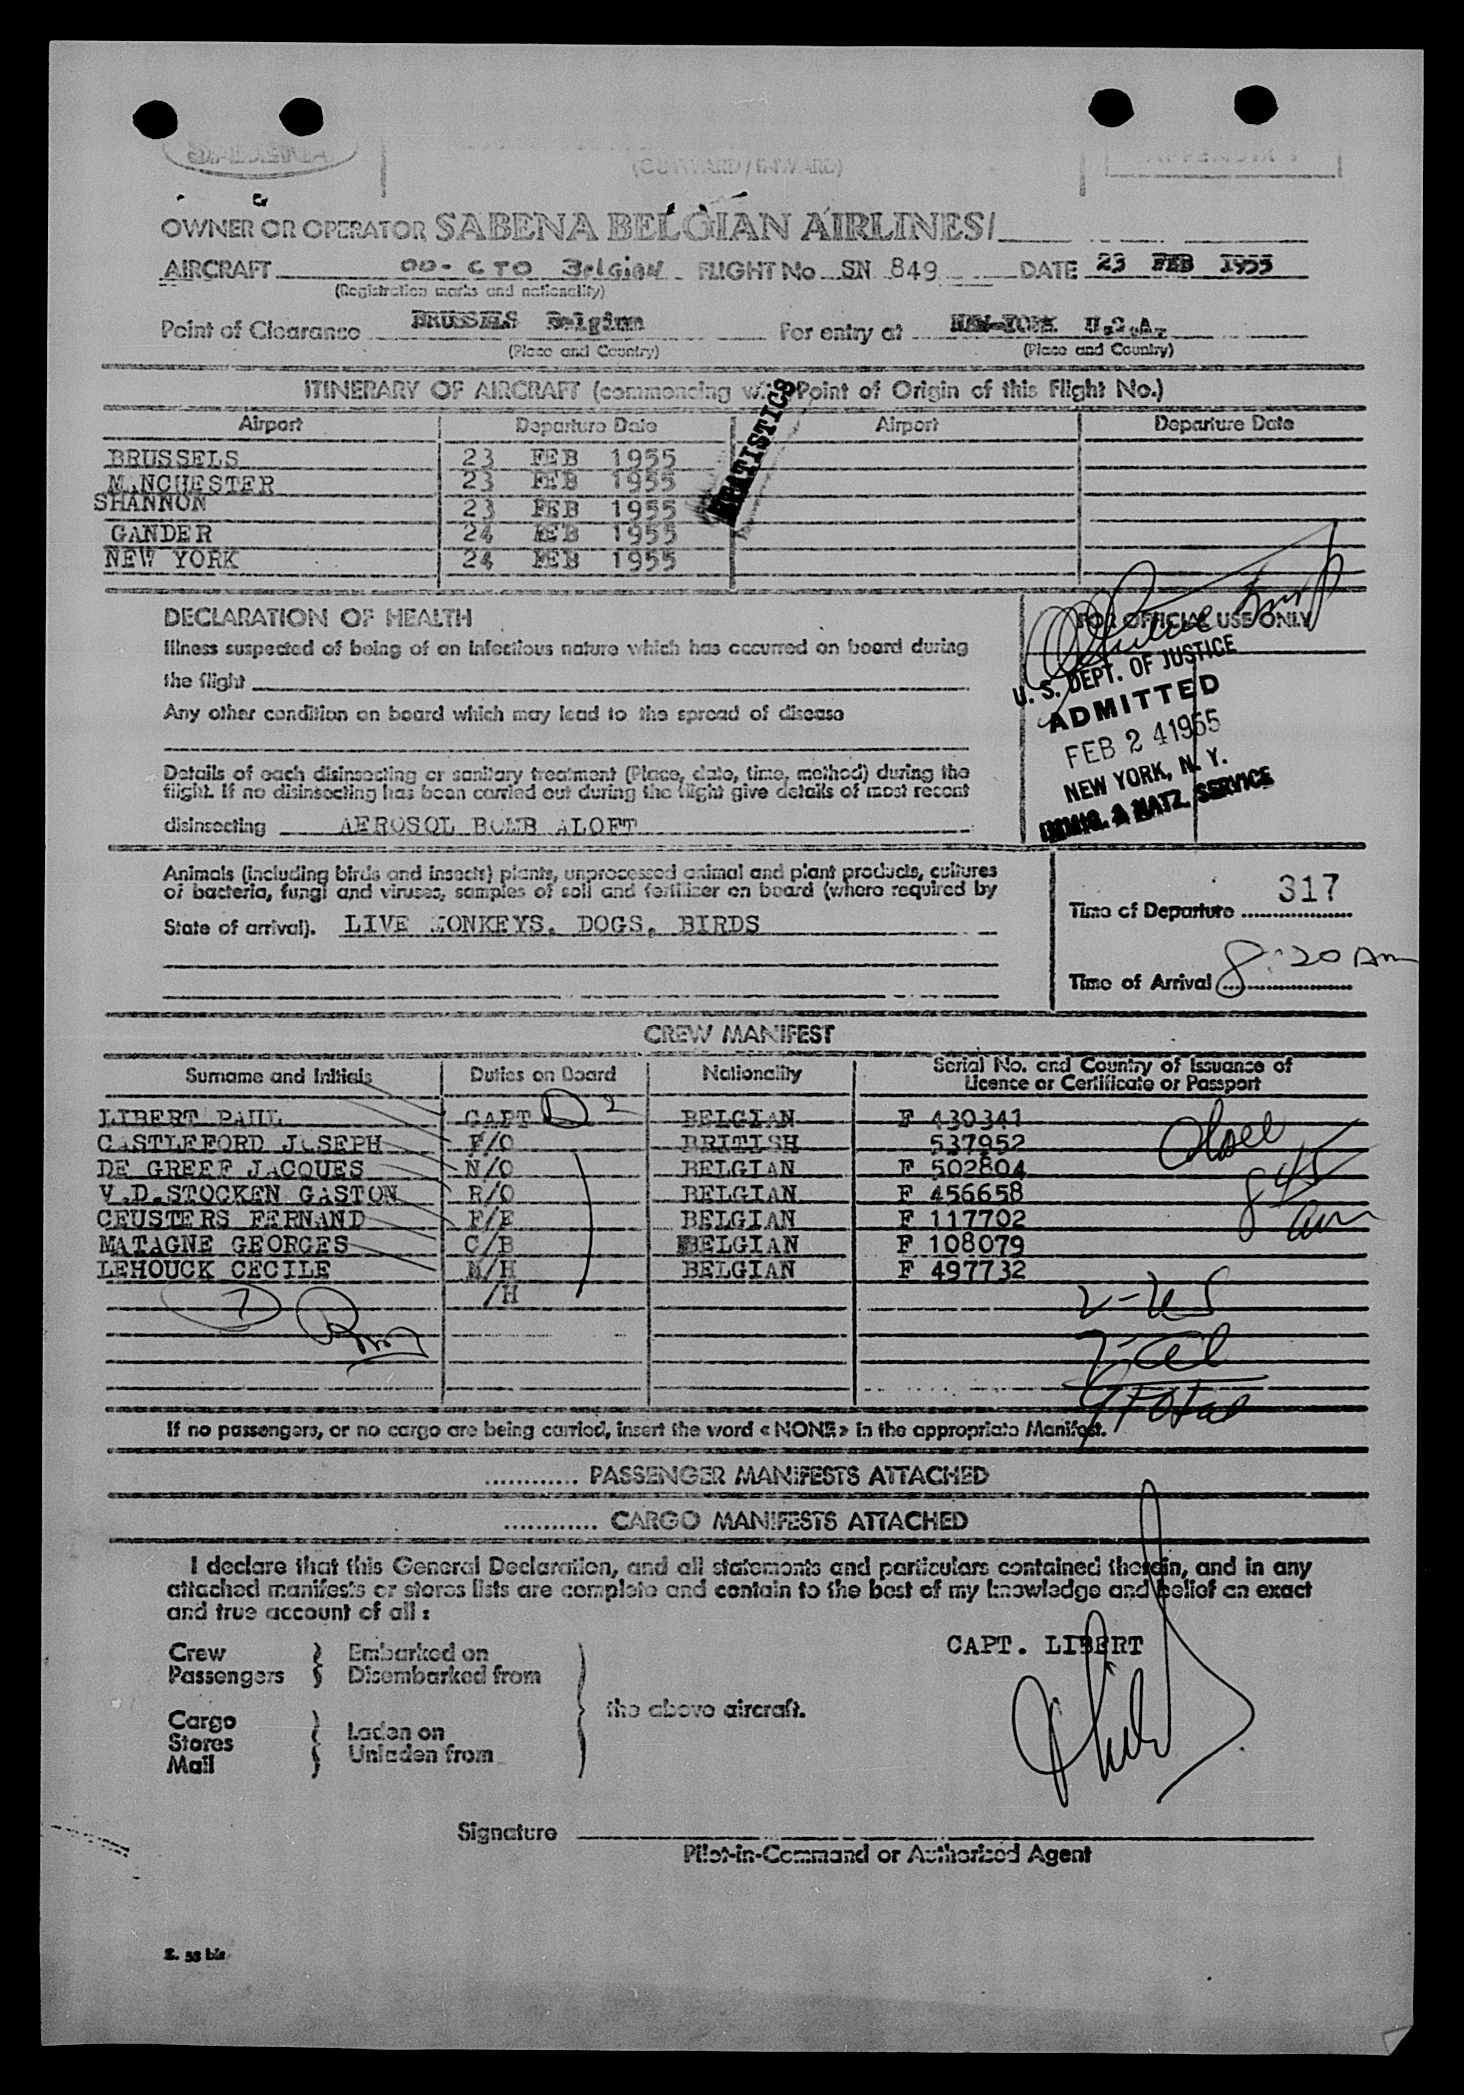 SABENA
(OUTWARD / INWARD)
APPENDIX 1
OWNER OR OPERATOR SABENA BELGIAN AIRLINES/
AIRCRAFT OO-CTO Belgian FLIGHT No SN 849 DATE 23 FEB 1955
(Registration marks and nationality)
Point of Clearance BRUSSELS Belgium For entry at NEW-YORK U.S.A.
(Place and Country) (Place and Country)
ITINERARY OF AIRCRAFT (commencing with Point of Origin of this Flight No.)
STATISTICS
Airport Departure Date Airport Departure Date
BRUSSELS 23 FEB 1955
MANCHESTER 23 FEB 1955
SHANNON 23 FEB 1955
GANDER 24 FEB 1955
NEW YORK 24 FEB 1955
DECLARATION OF HEALTH
FOR OFFICIAL USE ONLY
Illness suspected of being of an infectious nature which has occurred on board during
the flight
Any other condition on board which may lead to the spread of disease
Details of each disinsecting or sanitary treatment (Place, date, time, method) during the
flight. If no disinsecting has been carried out during the flight give details of most recent
disinsecting AEROSOL BOMB ALOFT
U. S. DEPT. OF JUSTICE
ADMITTED
FEB 24 1955
NEW YORK, N. Y.
IMMIG. & NATZ. SERVICE
Animals (including birds and insects) plants, unprocessed animal and plant products, cultures
of bacteria, fungi and viruses, samples of soil and fertilizer on board (where required by
State of arrival). LIVE MONKEYS, DOGS, BIRDS
Time of Departure 317
Time of Arrival 8:20 Am
CREW MANIFEST
Surname and Initials Duties on Board Nationality Serial No. and Country of Issuance of
Licence or Certificate or Passport
LIBERT PAUL CAPT D 2 BELGIAN F 430341
CASTLEFORD JOSEPH F/O BRITISH 537952
DE GREEF JACQUES N/O BELGIAN F 502804
V.D.STOCKEN GASTON R/O BELGIAN F 456658
CEUSTERS FERNAND F/E BELGIAN F 117702
MATAGNE GEORGES C/B BELGIAN F 108079
LEHOUCK CECILE M/H BELGIAN F 497732
/H
8 45
am
7
2-US
7-al
9 Total
If no passengers, or no cargo are being carried, insert the word « NONE » in the appropriate Manifest.
............ PASSENGER MANIFESTS ATTACHED
............ CARGO MANIFESTS ATTACHED
I declare that this General Declaration, and all statements and particulars contained therein, and in any
attached manifests or stores lists are complete and contain to the best of my knowledge and belief an exact
and true account of all :
Crew Embarked on
Passengers Disembarked from
the above aircraft.
Cargo
Stores Laden on
Mail Unladen from
CAPT. LIBERT
Signature
Pilot-in-Command or Authorized Agent
E. 53 bis